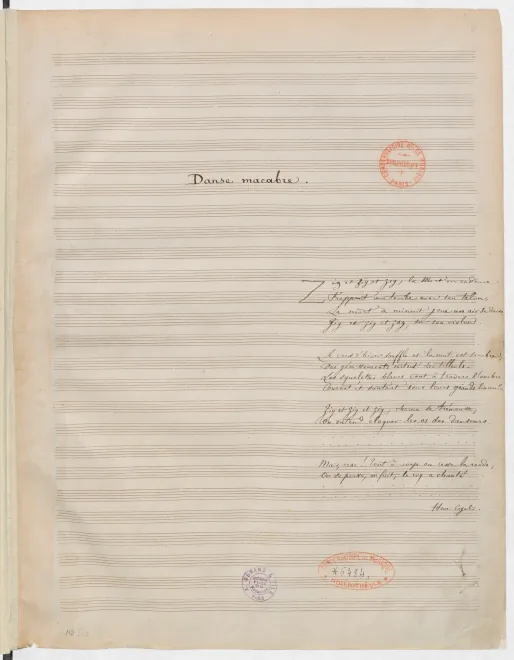 Danse macabre.
CONSERVATOIRE DE MUSIQUE
PARIS
Zig et Zig et Zig, la Mort en cadence
Frappant une tombe avec son talon,
La mort à minuit joue un air de danse
Zig et zig et zag, sur son violon.
Le vent d'hiver souffle et la nuit est sombre;
Des gémissements sortent des tilleuls.
Les squelettes blancs vont à travers l'ombre
Courant et sautant sous leurs grands linceuls.
Zig et Zig et Zig, chacun se trémousse,
On entend claquer les os des danseurs
Mais psit! tout à coup on quitte la ronde,
On se pousse, on fuit, le coq a chanté
BIBLIOTHÈQUE